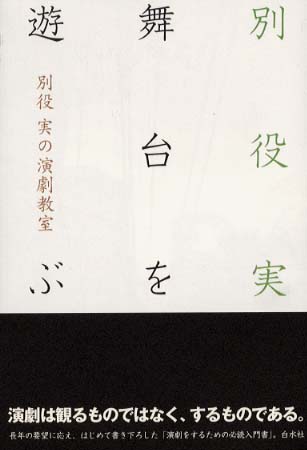 別役実
舞台を
遊ぶ
別役 実の演劇教室
演劇は観るものではなく、するものである。
長年の要望に応え、はじめて書き下ろした「演劇をするための必読入門書」。白水社